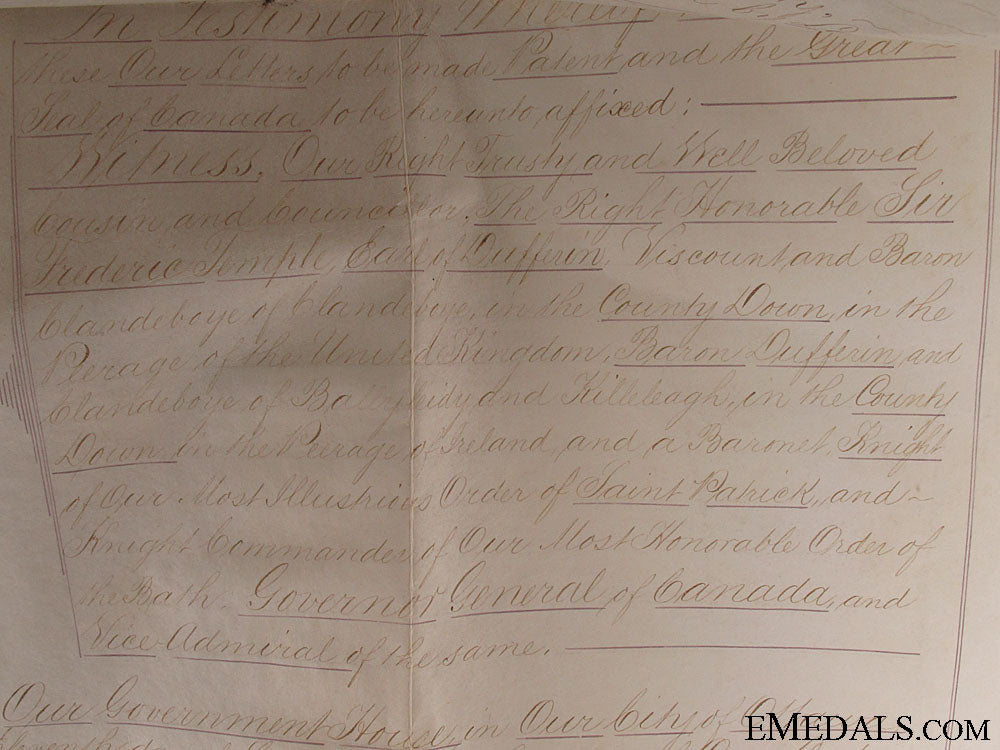 In Testimony Whereof
these Our Letters to be made Patent and the Great
Seal of Canada to be hereunto affixed:
Witness, Our Right Trusty and Well Beloved
Cousin and Councillor, The Right Honorable Sir
Frederic Temple, Earl of Dufferin, Viscount and Baron
Clandeboye of Clandeboye, in the County Down, in the
Peerage of the United Kingdom, Baron Dufferin and
Clandeboye of Ballyleidy and Killeleagh, in the County
Down in the Peerage of Ireland, and a Baronet, Knight
of Our Most Illustrious Order of Saint Patrick, and
Knight Commander of Our Most Honorable Order of
the Bath. Governor General of Canada, and
Vice-Admiral of the same.
Our Government House, in Our City of
EMEDALS.COM